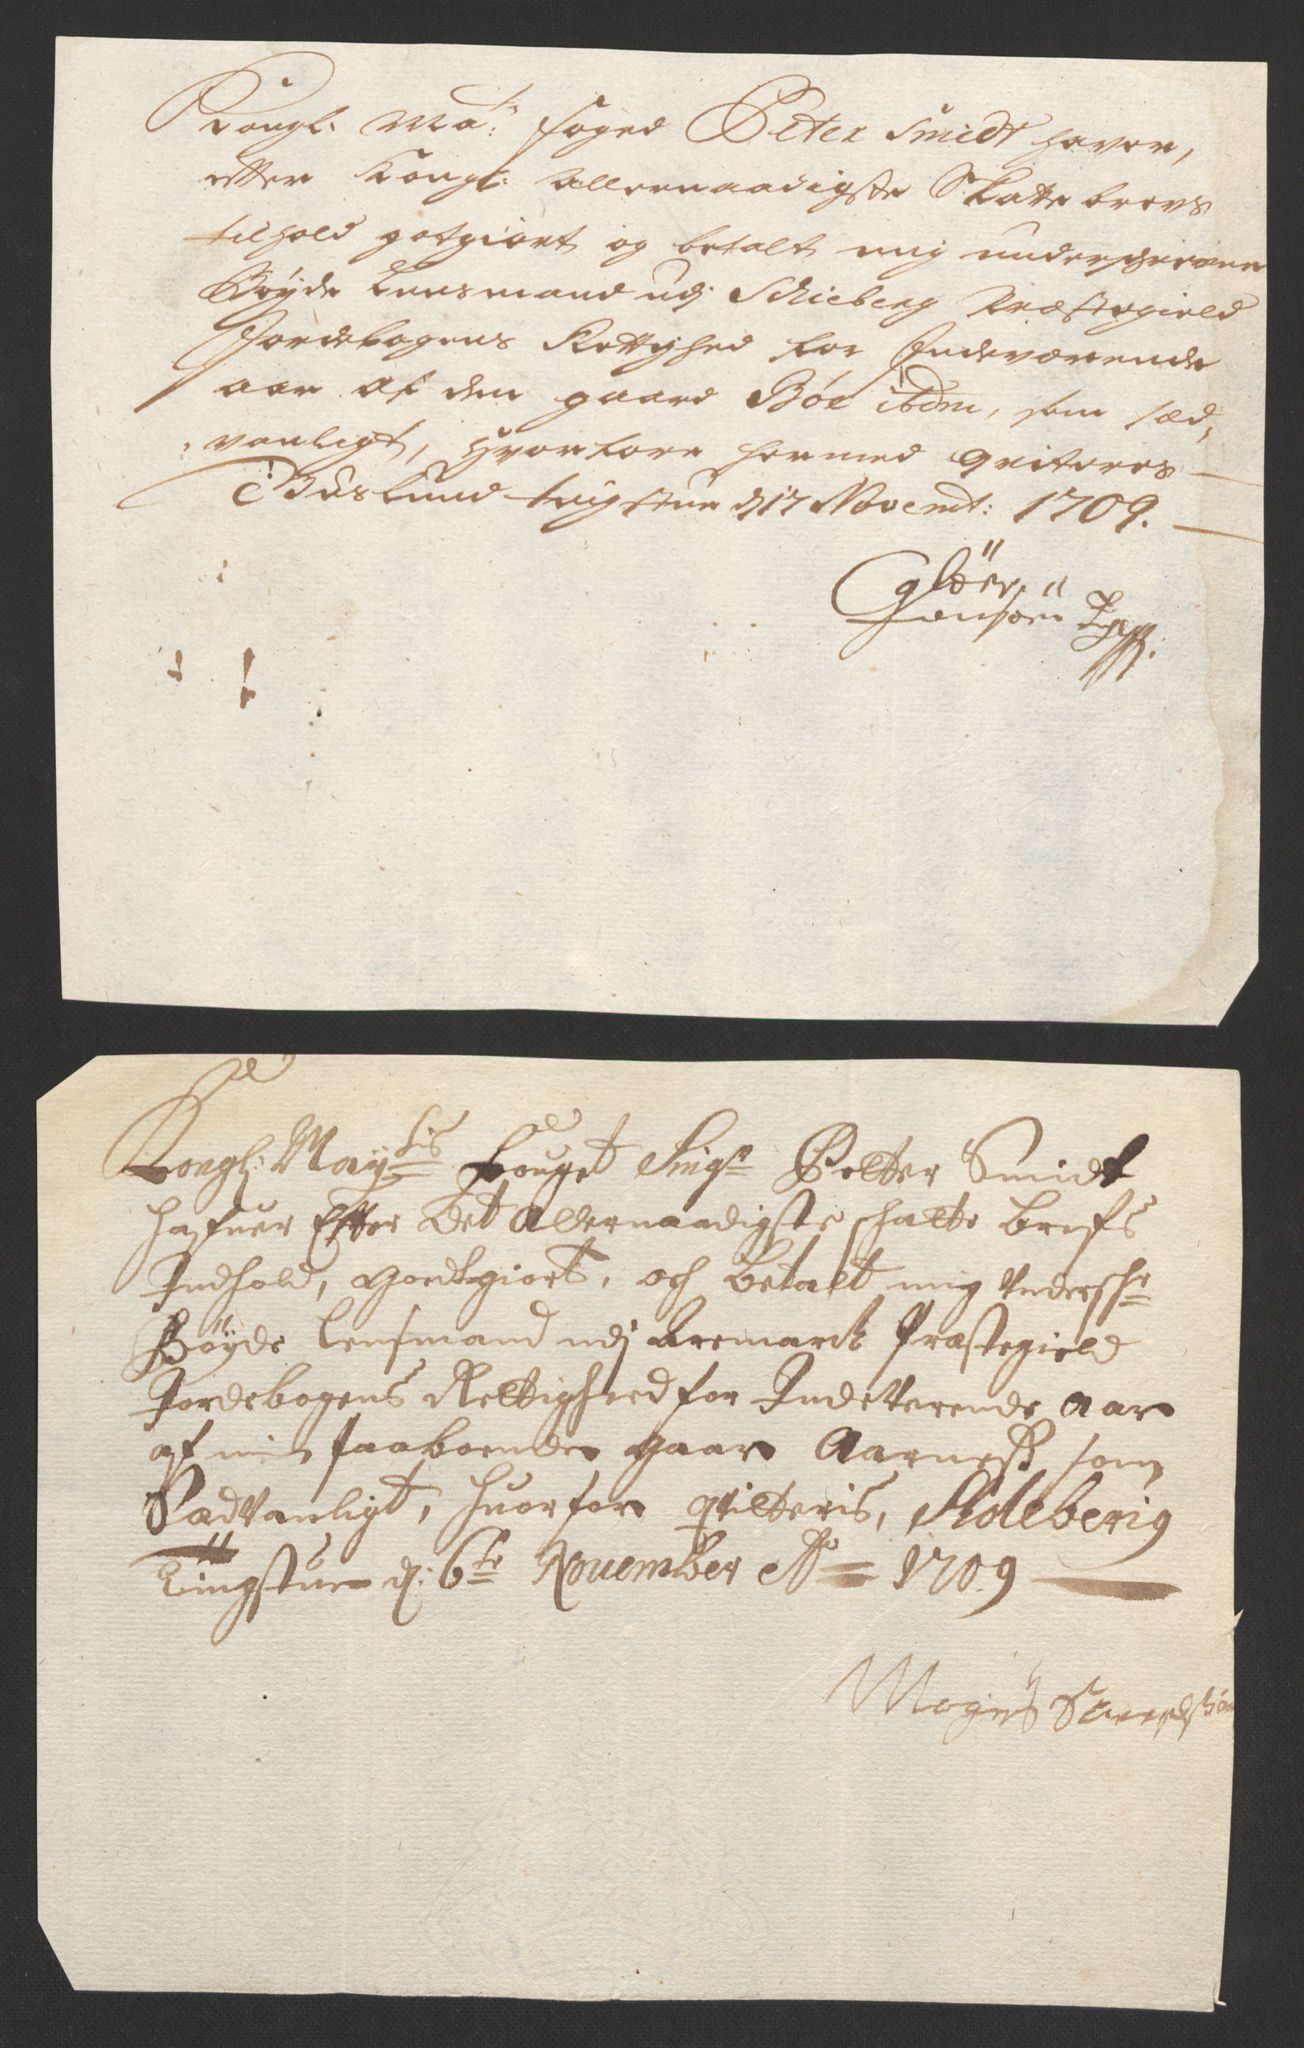 Kongl: Ma:t foged Peter Smidt haver,
effter Kongl: allernaadigste Skatte brevs
tilhold godgiort og betalt mig underschrevne
Bøyde Lensmand udj Schieberg Præstegield
Jordebogens Rettighed for Indeværende
aar af den gaard Böe ibdm, som sæd,
vanligt, hvorfore hermed qviteres
Buslund tingstue d 17 Novemb: 1709.
Jensøn
Kongl: Mayts Fouget Sigr Petter Smidt
hafuer Effter Det Allernaadigste schatte brefs
Indhold, godtgiort, och betalt mig Undersch
Bøyde Lensmand udj Aremarck Præstegield
Jordebogens Rettighed for Indeverende Aar
af min paaboende gaar Aarness, som
Sædvanligt, huorfor qvitteris, Sideberig
Tingstue d: 6te November Ao 1709
Mogns